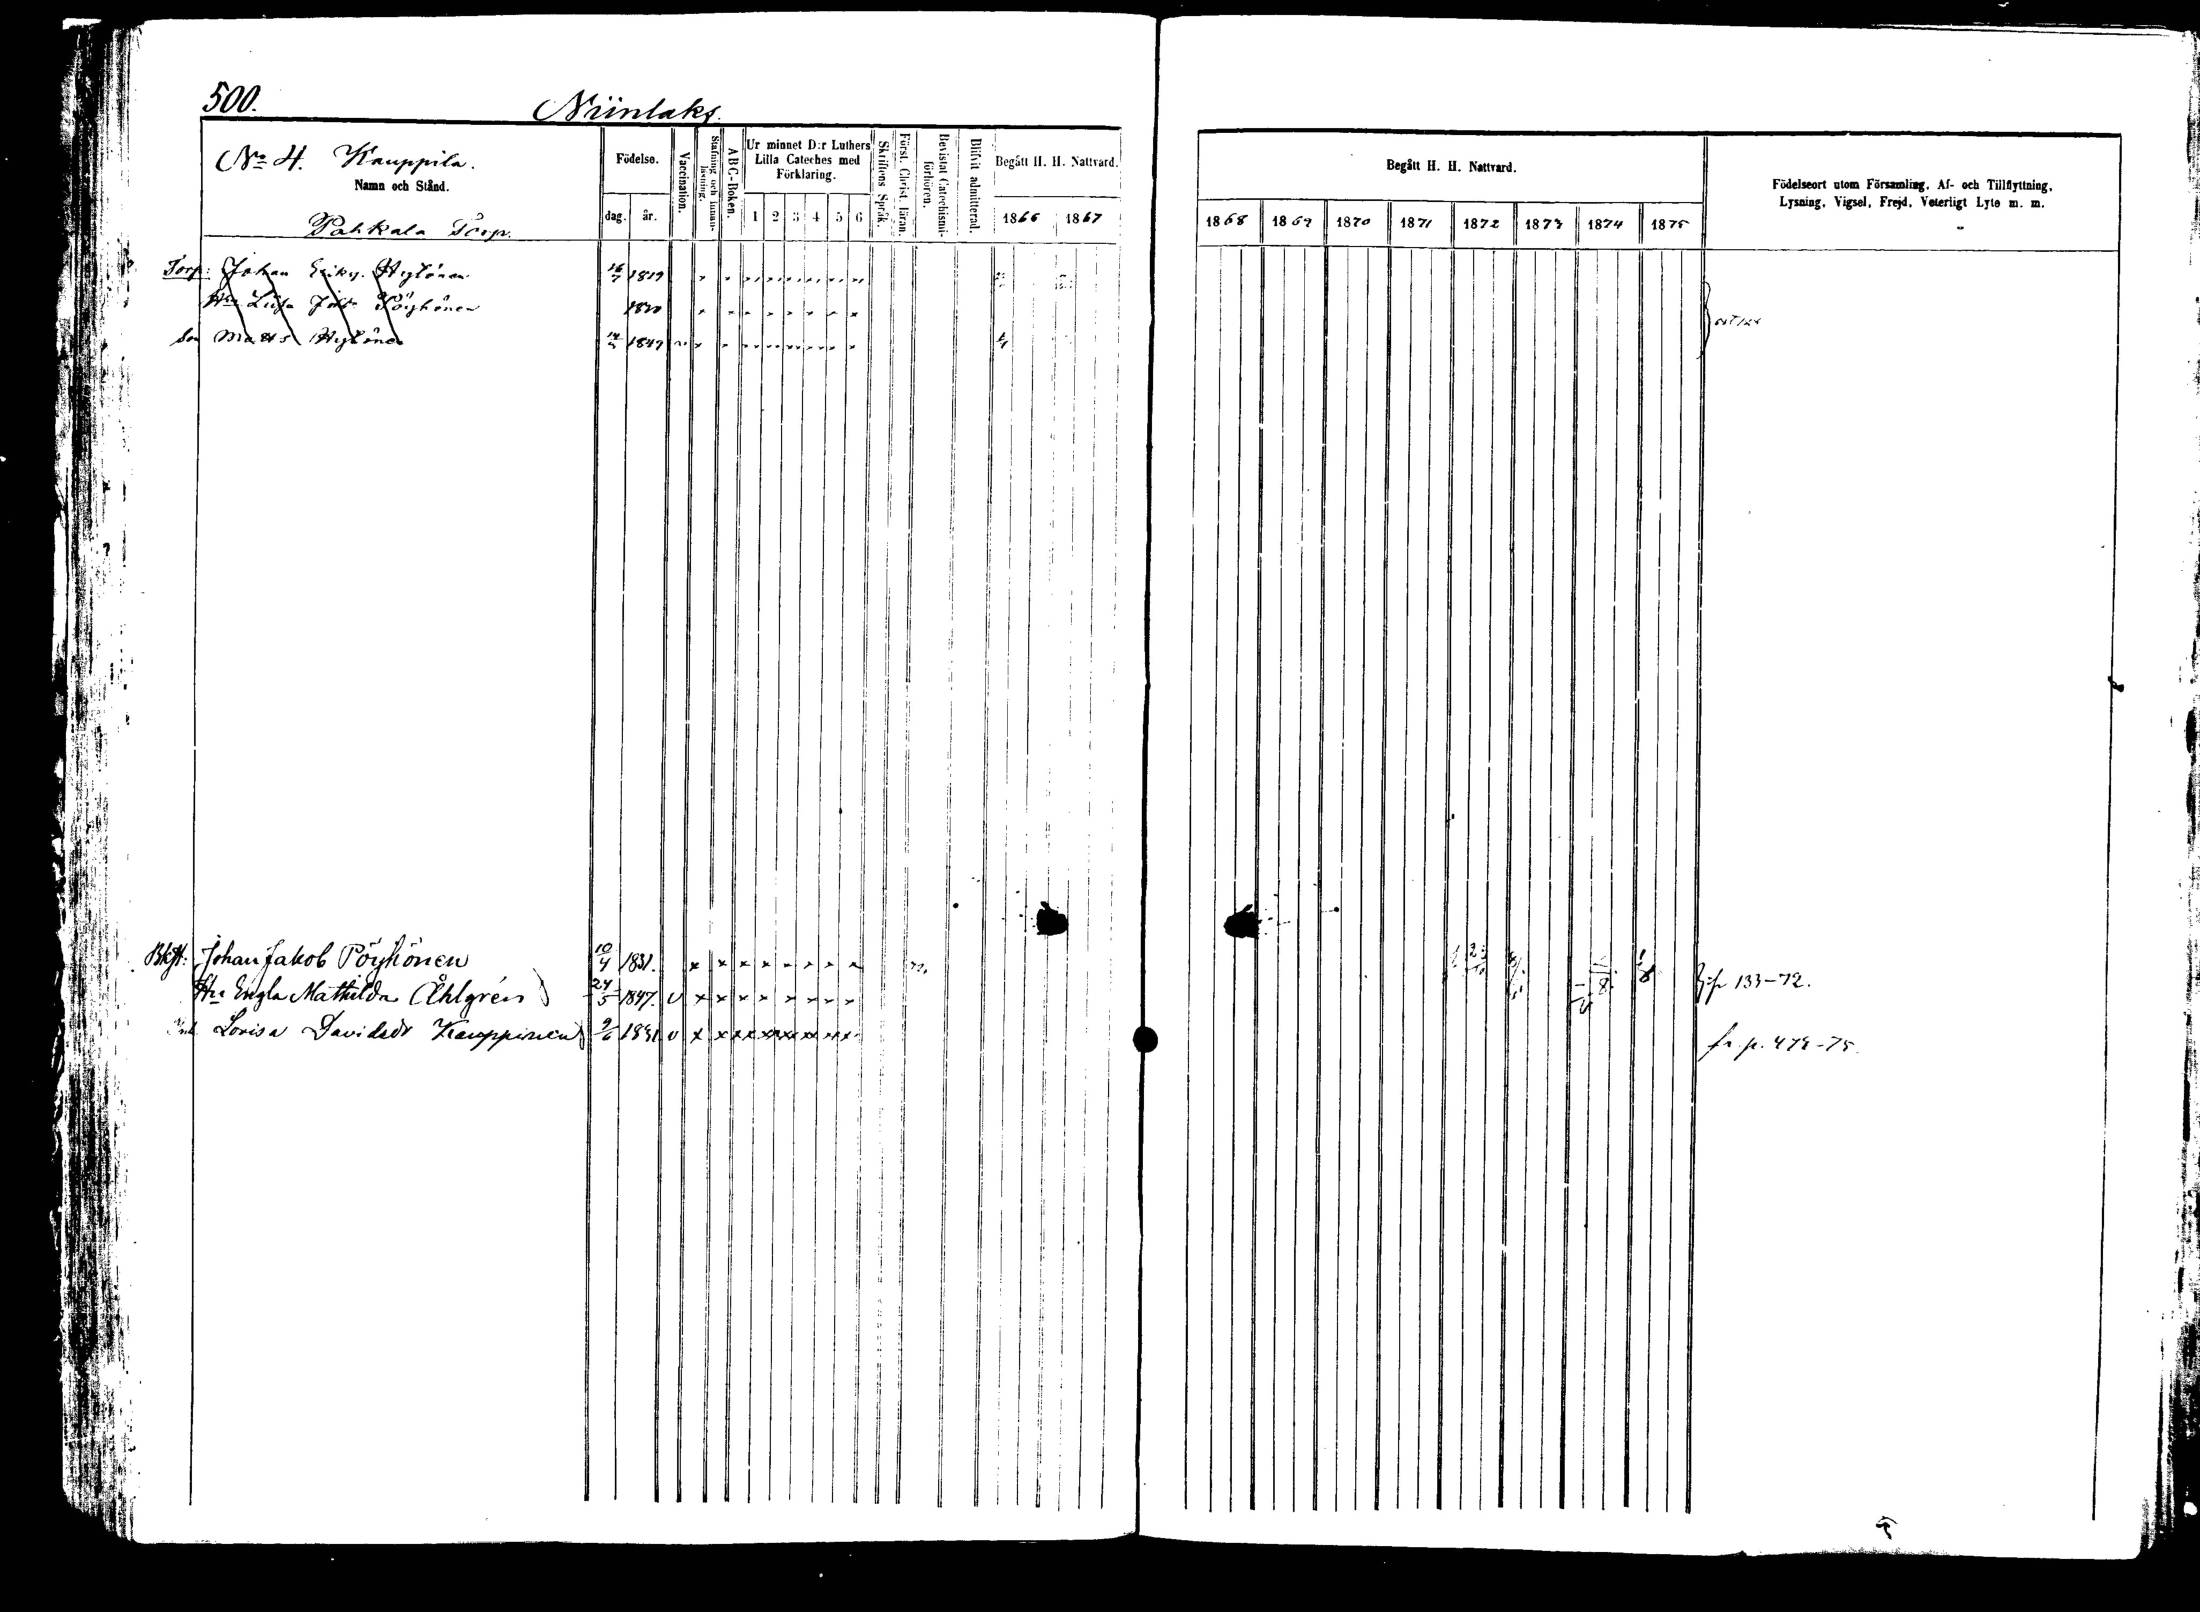 500.
Niinlaks.
No 4. Kauppila.
Namn och Stånd.
Pahkala Torp.
Födelse.
dag. år.
Vaccination.
Stafning och innanläsning.
ABC-Boken.
Ur minnet D:r Luthers
Lilla Cateches med
Förklaring.
1 2 3 4 5 6
Skriftens Språk.
Först. Christ. läran.
Bevistat Catechismi-
förhören.
Blifvit admitterad.
Begått H. H. Nattvard.
1866 1867
Begått H. H. Nattvard.
1868 1869 1870 1871 1872 1873 1874 1875
Födelseort utom Församling, Af- och Tillflyttning,
Lysning, Vigsel, Frejd, Veterligt Lyte m. m.
Torp: Johan Hytönen 16/7 1819
Hu Pöyhönen 1820
Son Matts Hytönen 1849
Johan Jakob Pöyhönen 10/4 1831.
Hu Engla Mathilda Åhlgrén 24/5 1847. v
fr p 133-72.
Lovisa Davidsdr Kauppinen 9/6 1831 v
fr. p. 479-75.